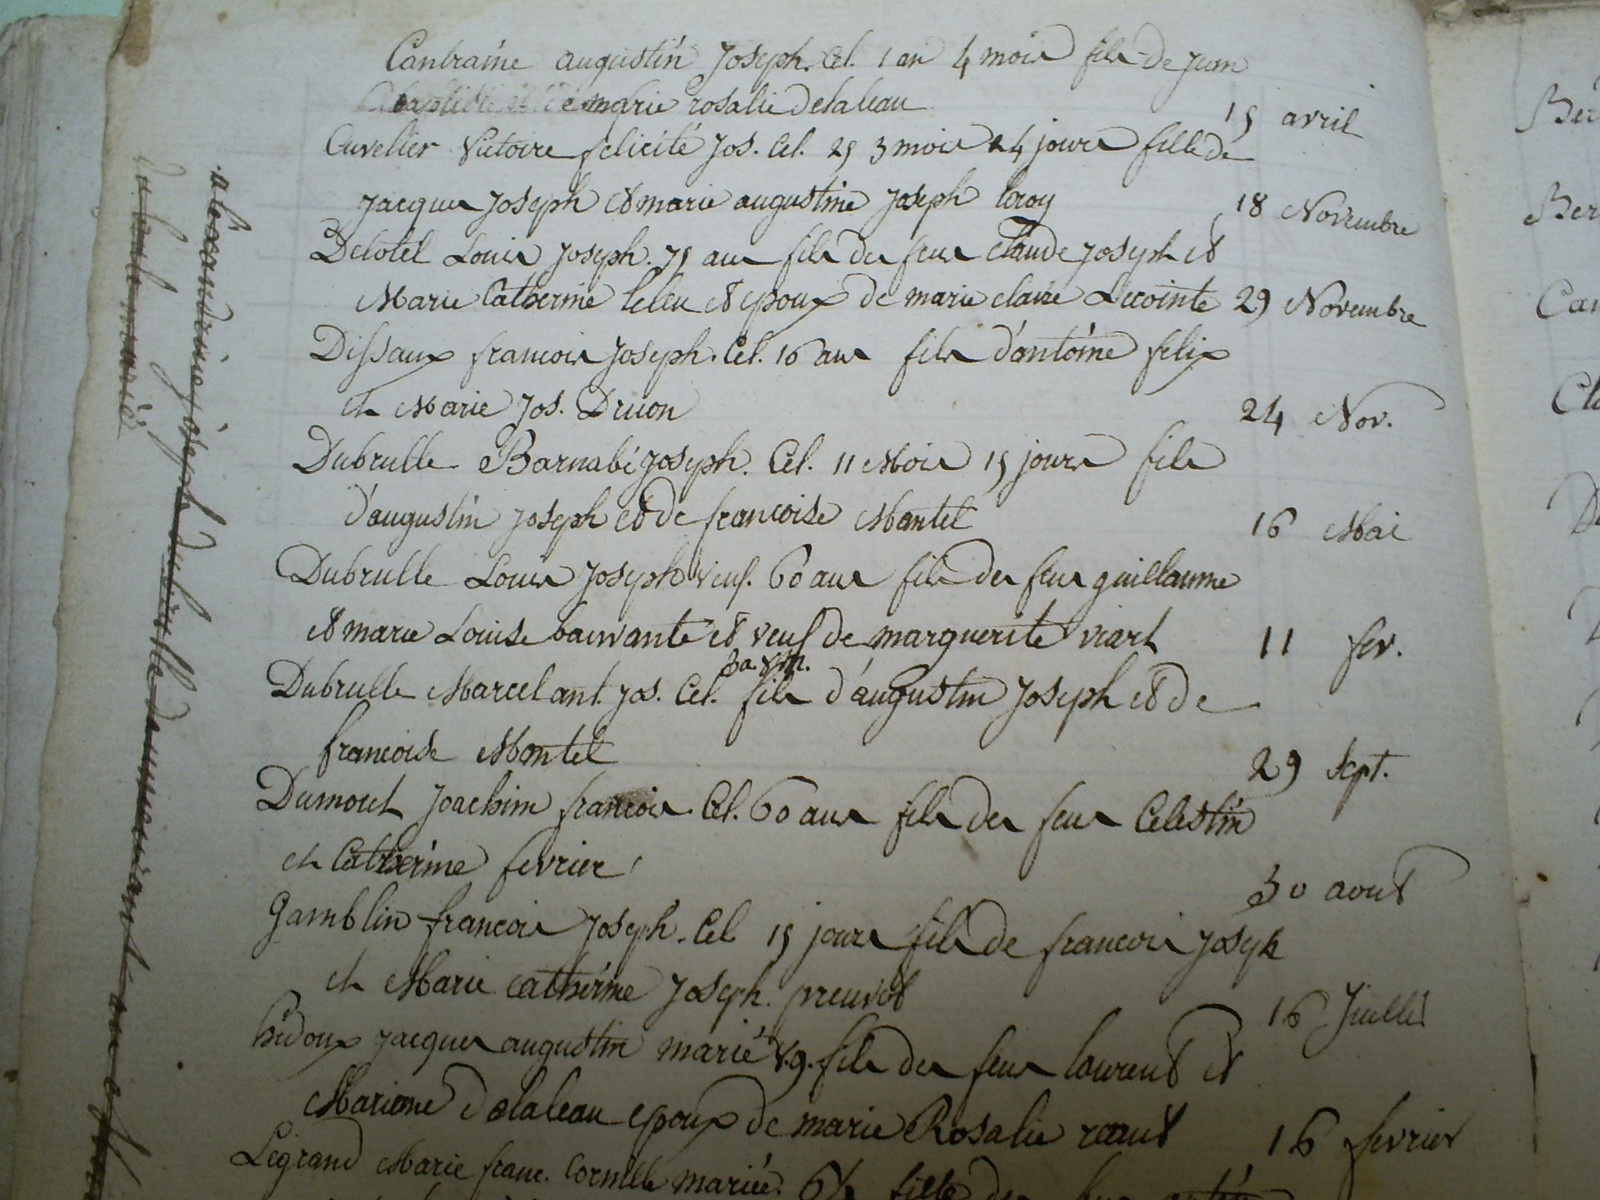 Cantraine augustin Joseph. Cel. 1 an 4 mois fils de Jean
Baptiste et de marie rosalie delaleau 15 avril
Cuvelier Victoire felicité Jos. Cel. 25 3 mois 24 jours fille de
Jacques Joseph et marie augustine Joseph leroy 18 Novembre
Delotel Louis Joseph. 75 ans fils des feus Claude Joseph et
Marie Catherine leleu et epoux de marie claire Lecointe 29 Novembre
Dissaux francois Joseph. Cel. 16 ans fils d'antoine felix
et Marie Jos. Druon 24 Nov.
Dubrulle Barnabé Joseph. Cel. 11 Mois 15 jours fils
d'augustin Joseph et de francoise Montel 16 Mai
Dubrulle Louis Joseph veuf. 60 ans fils des feus guillaume
et marie Louise et veuf de marguerite viart 11 fev.
3 a. 8 m.
Dubrulle Marcel ant. Jos. Cel. fils d'augustin Joseph et de
francoise Montel 29 Sept.
Dumont Joachim francois. Cel. 60 ans fils des feus Celestin
et Catherine fevrier 30 aout
Gamblin francois Joseph. Cel 15 jours fils de francois Joseph
et Marie catherine Joseph. preuvot 16 Juillet
hidoux Jacques augustin marié fils des feus laurent et
Mariane delaleau epoux de marie Rosalie 16 fevrier
Legrand Marie franc. Cornille mariée. fille des feus
alexandrine joseph dubrulle
Ber
Ber
Can
Cl
D